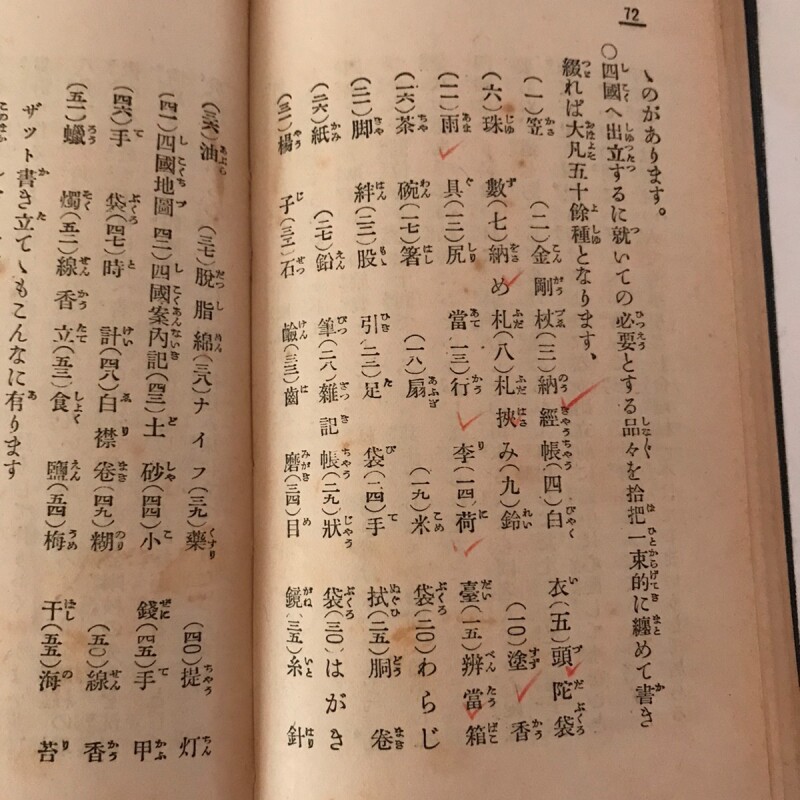 72
ヽのがあります。
〇四國へ出立するに就いての必要とする品々を拾把一束的に纏めて書き
綴れば大凡五十餘種となります、
(一)笠 (二)金剛杖(三)納經帳(四)白衣(五)頭陀袋
(六)珠數(七)納め札(八)札挾み(九)鈴 (一〇)塗香
(一一)雨具(一二)尻當(一三)行李(一四)荷臺(一五)辨當箱
(一六)茶碗(一七)箸 (一八)扇 (一九)米袋(二〇)わらじ
(二一)脚絆(二二)股引(二三)足袋(二四)手拭(二五)胴卷
(二六)紙 (二七)鉛筆(二八)雜記帳(二九)狀袋(三〇)はがき
(三一)楊子(三二)石鹼(三三)齒磨(三四)目鏡(三五)糸針
(三六)油 (三七)脫脂綿(三八)ナイフ(三九)藥 (四〇)提灯
(四一)四國地圖(四二)四國案內記(四三)土砂(四四)小錢(四五)手甲
(四六)手袋(四七)時計(四八)白襟卷(四九)糊 (五〇)線香
(五一)蠟燭(五二)線香立(五三)食鹽(五四)梅干(五五)海苔
ザット書き立てヽもこんなに有ります